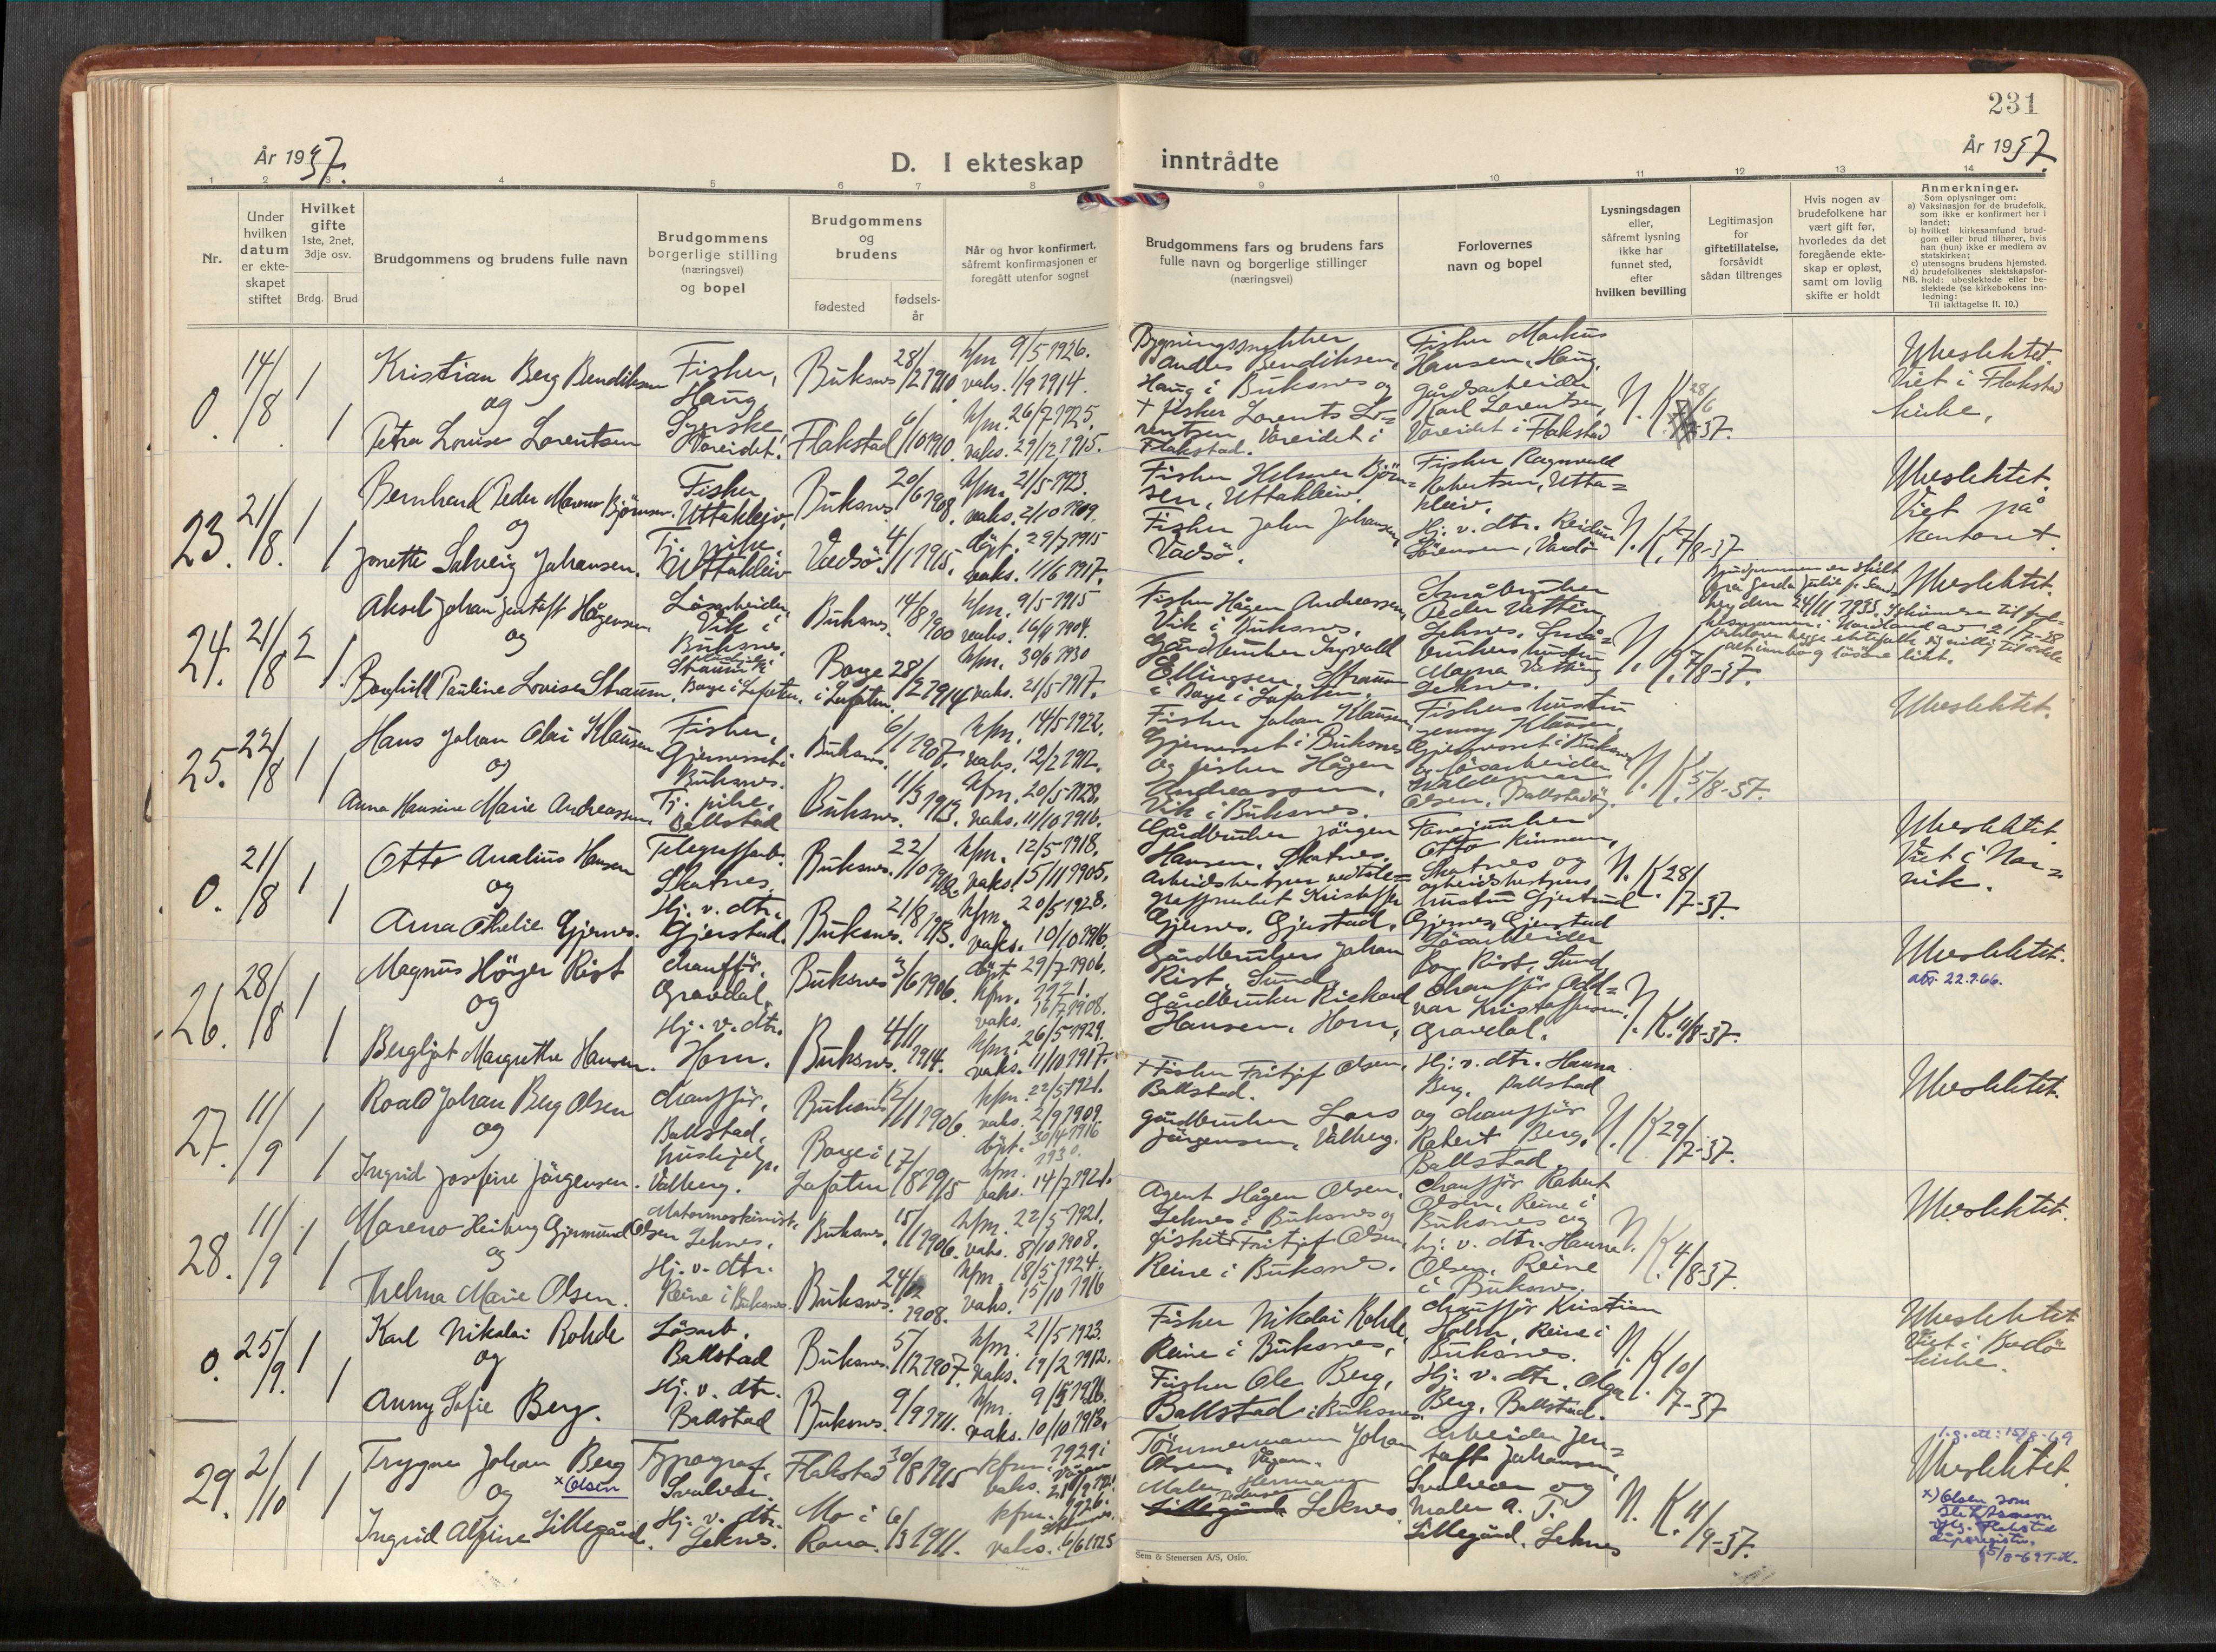 231
År 1937.
D. I ekteskap inntrådte
År 1937.
1 2 3 4 5 6 7 8 9 10 11 12 13 14
Nr.
Under hvilken datum er ekteskapet stiftet
Hvilket gifte 1ste, 2net, 3dje osv.
Brdg. Brud
Brudgommens og brudens fulle navn
Brudgommens borgerlige stilling (næringsvei) og bopel
Brudgommens og brudens
fødested
fødselsår
Når og hvor konfirmert, såfremt konfirmasjonen er foregått utenfor sognet
Brudgommens fars og brudens fars fulle navn og borgerlige stillinger (næringsvei)
Forlovernes navn og bopel
Lysningsdagen eller, såfremt lysning ikke har funnet sted, efter hvilken bevilling
Legitimasjon for giftetillatelse, forsåvidt sådan tiltrenges
Hvis nogen av brudefolkene har vært gift før, hvorledes da det foregående ekteskap er opløst, samt om lovlig skifte er holdt
Anmerkninger.
Som oplysninger om:
a) Vaksinasjon for de brudefolk, som ikke er konfirmert her i landet;
b) hvilket kirkesamfund brudgom eller brud tilhører, hvis han (hun) ikke er medlem av statskirken;
c) utensogns brudens hjemsted.
d) brudefolkenes slektskapsforhold: ubeslektede eller beslektede (se kirkebokens innledning:
NB.
Til iakttagelse II. 10.)
0. 14/8 1 Kristian Berg Bendiksen Fisker, Haug. Buksnes 28/2 1910. kfm 9/5 1926. vaks. 1/9 1914.
Bygningssnekker Andles Bendiksen, Haug i Buksnes og
Fisker Markus Hansen, Haug,
Ubeslektet. Viet i Flakstad kirke.
og
1 Petra Louise Lorentsen Syerske Vareidet. Flakstad 6/10 1910. kfm. 26/7 1925. vaks. 29/12 1915.
+ fisker Lorents Lorentsen Vareidet i Flakstad.
gårdsarbeider Karl Lorentsen, Vareidet i Flakstad
N. K. 28/6 37.
23. 21/8. 1 Bernhard Peder Marius Bjørnsen. Fisker Uttakleiv. Buksnes. 20/6 1908. kfm. 21/5 1923. vaks. 2/10 1909.
Fisker Helmer Bjørnsen, Uttakleiv.
Fisker Ragnvald Robertsen, Uttakleiv.
Ubeslektet. Viet på kontoret.
og
1 Jonette Solveig Johansen. Tj. pike. Uttakleiv Vadsø. 4/1 1915. døpt. 29/7 1915 vaks. 11/6 1917.
Fisker John Johansen, Vadsø.
Hj. v. dtr. Reidun Sørensen, Vardø
N. K. 7/8-37
24. 21/8 2 Aksel Johan Gustaft Hågensen. Løsarbeider Vik i Buksnes. Buksnes. 14/8 1900 kfm. 9/5 1915 vaks. 16/9 1904.
Fisker Hågen Andreassen, Vik i Buksnes.
Småbruker Peder Vatten, Leknes.
Ubeslektet.
og
1. Borghild Pauline Lovise Straum. Straum Borge i Lofoten. Borge i Lofoten. 28/2 1914 kfm. 30/6 1930 vaks. 21/5 1917.
Gårdbruker Ingvald Ellingsen, Straum i Borge i Lofoten.
Småbrukers hustru Magna Vatten Leknes.
N. K. 7/8-37.
25. 22/8 1 Hans Johan Olai Klausen Fisker, Gjermesset i Buksnes. Buksnes. 6/1 1907. kfm. 14/5 1922. vaks. 12/2 1912.
Fisker Johan Klausen, Gjermesset i Buksnes
Fiskers hustru Jenny Klausen, Gjermesset i Buksnes
Ubeslektet.
og
1 Anna Hansine Marie Andreassen. Tj. pike. Ballstad Buksnes. 11/3 1913. kfm. 20/5 1928. vaks. 11/10 1916.
og fisker Hågen Andreassen, Vik i Buksnes.
og løsarbeider Waldemar Olsen, Ballstadøy.
N. K. 5/8-37.
0. 21/8 1 Otto Analius Hansen Telegrafarb. Skotnes. Buksnes. 22/10 kfm. 12/5 1918. vaks. 15/11 1905.
Gårdbruker Jørgen Hansen, Skotnes.
Fanejunker Otto Kinnem, Skotnes og
Ubeslektet. Viet i Narvik.
og
1 Anna Othelie Gjernes. Hj. v. dtr. Gjerstad. Buksnes. 21/8 1913. kfm. 20/5 1928. vaks. 10/10 1916.
Arbeidsbestyrer ved telegrafverket Kristoffer Gjernes, Gjerstad.
arbeidsbestyrers hustru Gjertrud Gjernes, Gjerstad
N. K 28/7-37.
26. 28/8 1 Magnus Høyer Rist chauffør, Gravdal. Buksnes 3/6 1906. døpt 29/7 1906. kfm. 1921. vaks. 16/7 1908.
Gårdbruker Johan Rist, Sund
Løsarbeider Roy Rist, Sund,
Ubeslektet.
att. 22.9.66.
og
1 Bergljot Margrethe Hansen. Hj. v. dtr. Horn. Buksnes. 4/11 1914. kfm. 26/5 1929. vaks. 11/10 1917.
Gårdbruker Rickard Hansen, Horn,
Chauffør Oddvar Kristoffersen, Gravdal.
N. K. 4/8-37.
27. 11/9 1 Roald Johan Berg Olsen chauffør, Ballstad, Buksnes /11 1906 kfm. 22/5 1921. vaks. 2/9 1909.
+ Fisker Fritjof Olsen, Ballstad.
Hj. v. dtr. Hanna Berg, Ballstad
Ubeslektet.
og
1 Ingrid Josefine Jørgensen. hushjelp, Valberg. Borge i Lofoten 17/8 1915 døpt. 30/4 1916 kfm. 1930. vaks. 14/7 1921.
gårdbruker Lars Jørgensen, Valberg.
og chauffør Robert Berg, Ballstad
N. K 29/7-37.
28. 11/9 1 Mareno Heiberg Gjermund Olsen Motormaskinist. Leknes. Buksnes. 15/11 1906. kfm. 22/5 1921. vaks. 8/10 1908.
Agent Hågen Olsen, Leknes i Buksnes og
chauffør Robert Olsen, Reine i Buksnes og
Ubeslektet.
og
1 Thelma Marie Olsen. Hj. v. dtr. Reine i Buksnes. Buksnes. 24/12 1908. kfm. 18/5 1924. vaks. 15/10 1916
fisker Fritjof Olsen, Reine i Buksnes.
hj. v. dtr. Hanna Olsen, Reine i Buksnes.
N. K. 4/8-37.
0. 25/9. 1 Karl Nikolai Rohde Løsarb. Ballstad Buksnes. 5/12 1907. kfm. 21/5 1923. vaks. 19/2 1912.
Fisker Nikolai Rohde, Reine i Buksnes,
chauffør Kristian Holm, Reine i Buksnes.
Ubeslektet Viet i Bodø kirke.
og
1 Anny Sofie Berg. Hj. v. dtr. Ballstad Buksnes. 9/9 1911. kfm. 9/5 1926. vaks. 10/10 1913.
Fisker Ole Berg, Ballstad i Buksnes.
Hj. v. dtr. Olga Berg, Ballstad.
N. K 10/7-37
29. 2/10 1 Trygve Johan Berg Typograf, Svolvær. Flakstad 30/8 1915 kfm. 1929 i Vågan
x Olsen
Tømmermann Johan Olsen, Vågan.
Arbeider Jentoft Johansen, Svolvær og
Ubeslektet.
og
1 Ingrid Alfine Lillegård. Hj. v. dtr. Leknes. Mo i Rana. 6/3 1911. kfm. 1926. vaks. 6/6 1925
Maler Hermann Pedersen Lillegård Leknes.
maler A. P. Lillegård, Leknes
N. K. 4/9-37.
x) Olsen som slektsnavn iflg. Flakstad dåpsregister. 15/8-69 T.K.
Sem & Stenersen A/S, Oslo.